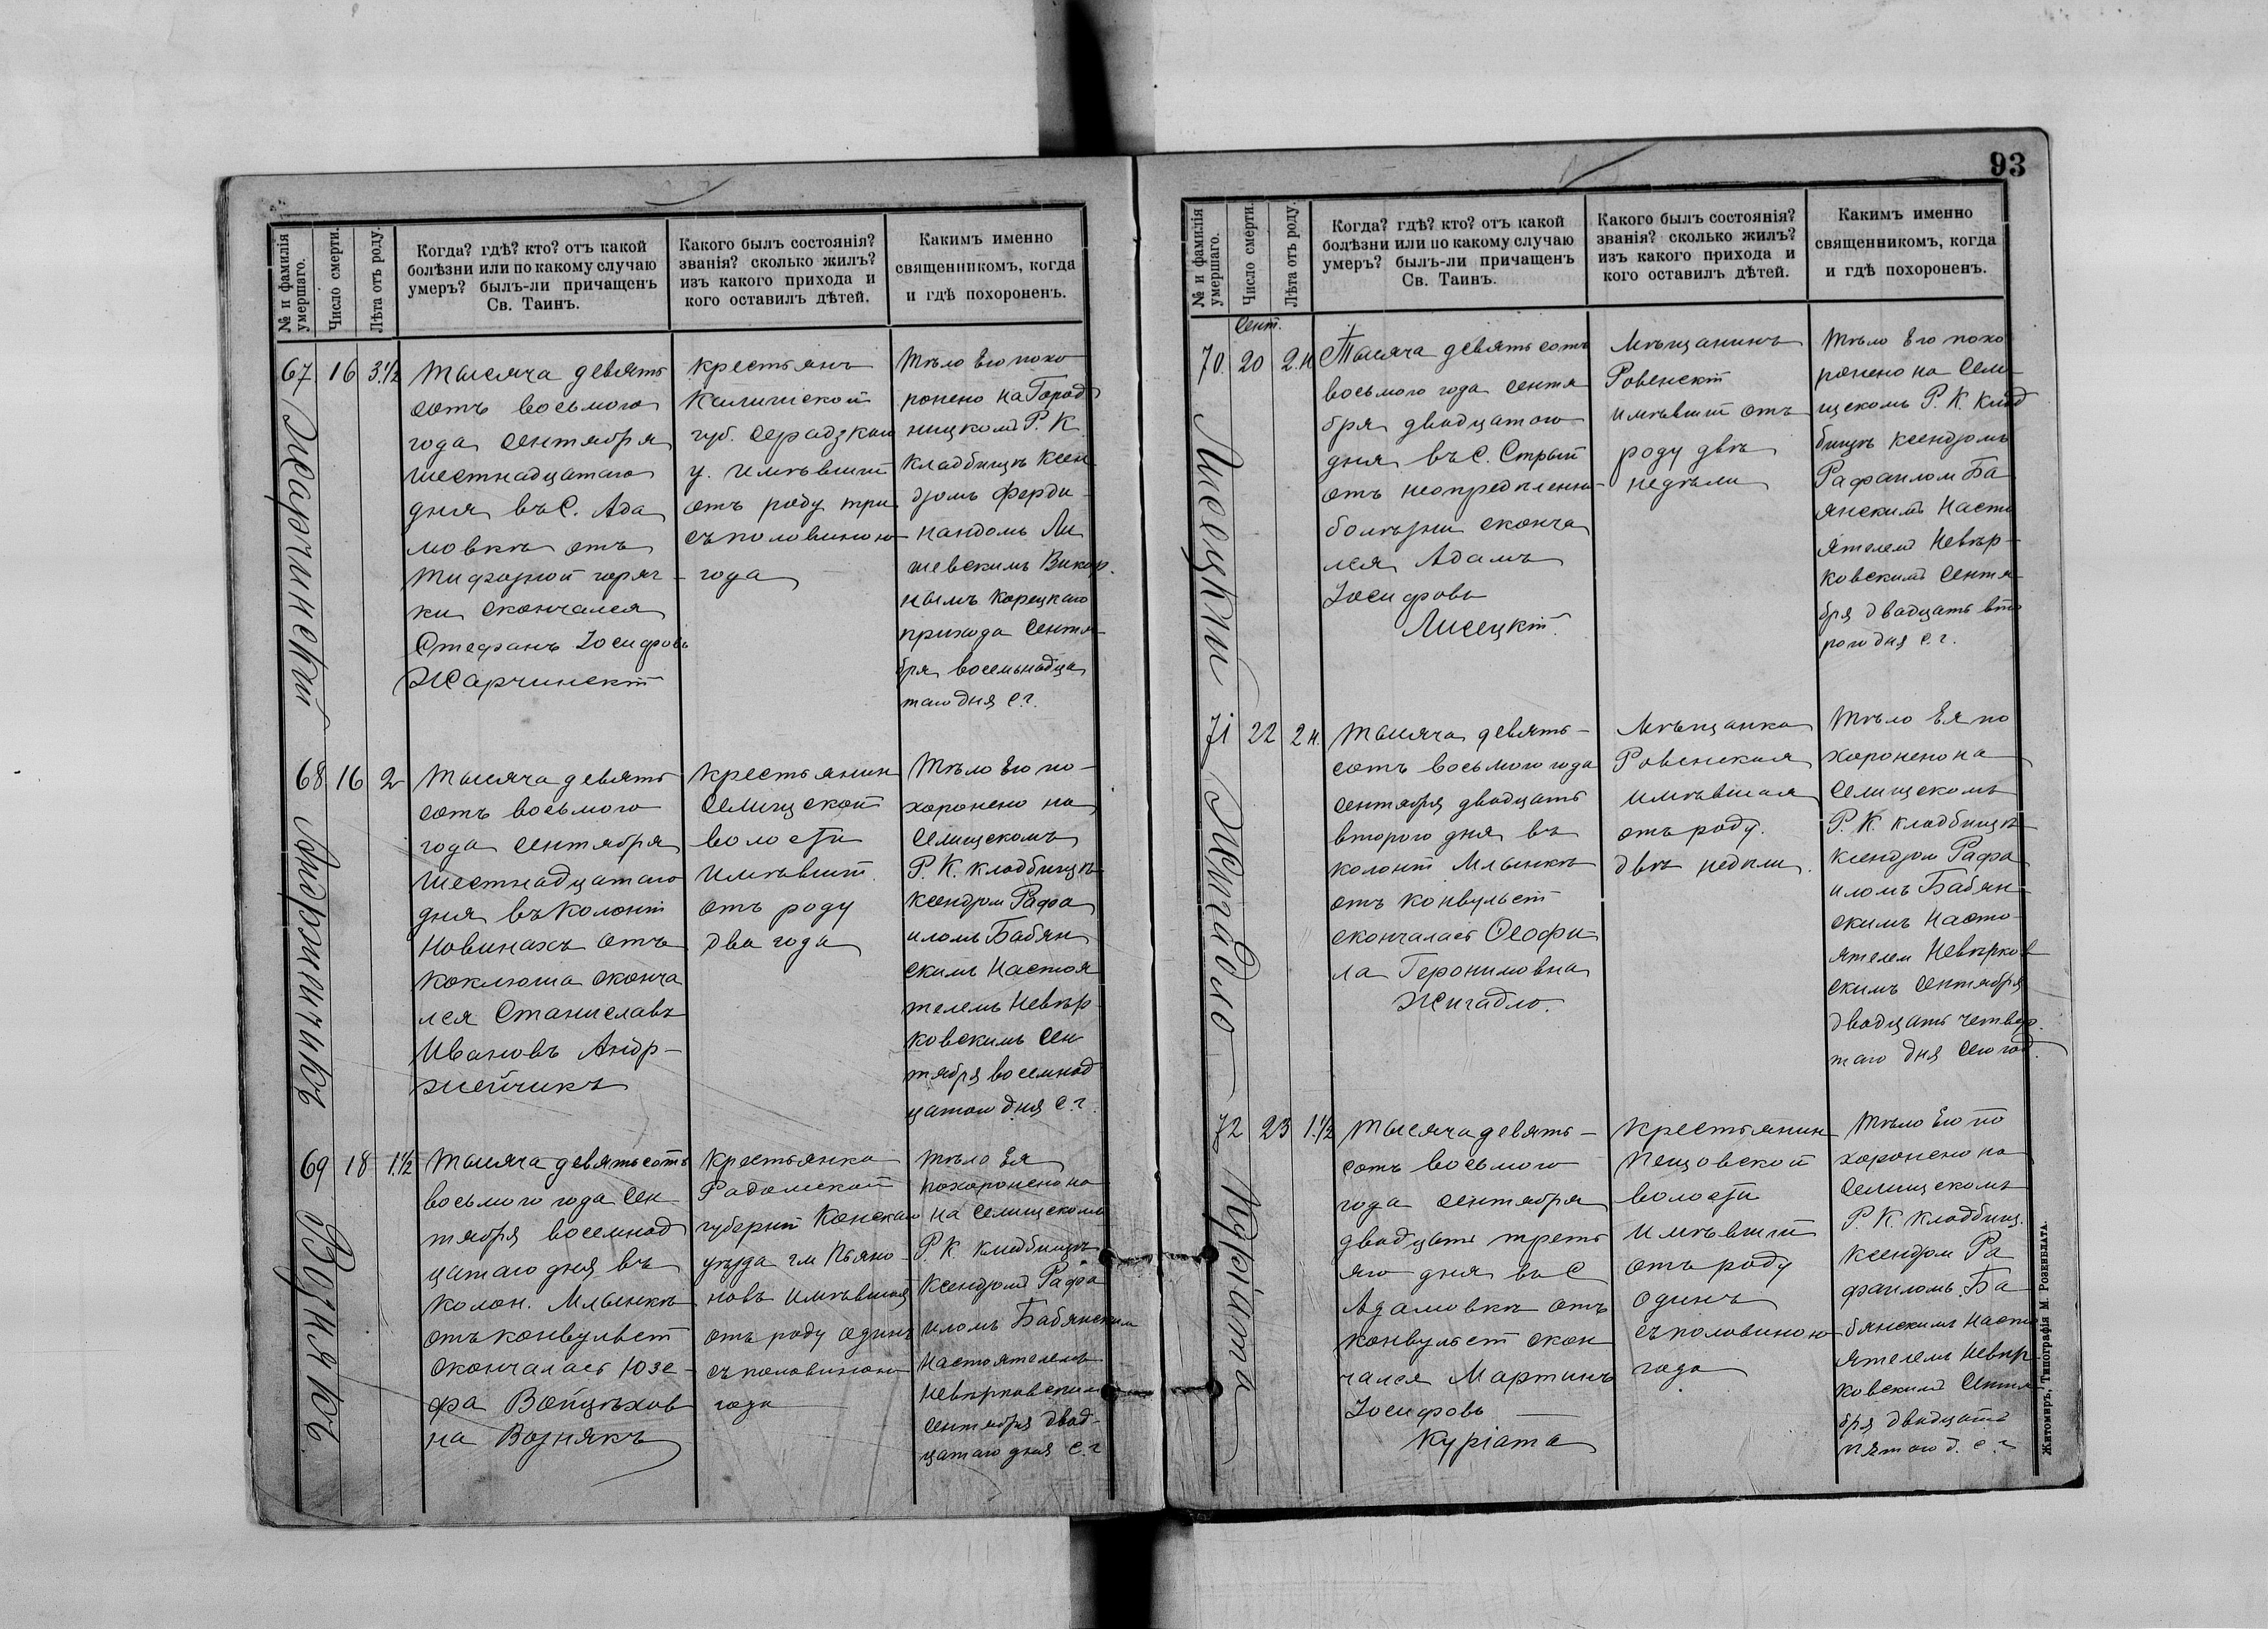 № и фамилія умершаго.
Число смерти.
Лѣта отъ роду.
Когда? гдѣ? кто? отъ какой
болѣзни или по какому случаю
умеръ? былъ-ли причащенъ
Св. Таинъ.
Какого былъ состоянія?
званія? сколько жилъ?
изъ какого прихода и
кого оставилъ дѣтей.
Какимъ именно
священникомъ, когда
и гдѣ похороненъ.
67
Жарчинскій
16
3 1/2
Тысяча девять
сотъ восьмого
года сентября
шестнадцатаго
дня въ с. Ада
мовкѣ отъ
тифозной горяч
ки скончался
Стефанъ Іосифовъ
Жарчинскій
крестьянъ
Калишской
губ. Серадзкаго
у. имѣвшій
отъ роду три
съ половиною
года
Тѣло Его похо
ронено на Город
ницкомъ Р. К.
кладбищѣ Ксен
дзомъ Ферди
нандомъ Ли
шевскимъ Викар.
нымъ Корецкаго
прихода Сентя
бря восемьнадца
таго дня с. г.
68
Андржейчикъ
16
2
Тысяча девять
сотъ восьмого
года сентября
шестнадцатаго
дня въ колоніи
Новинахъ отъ
коклюша сконча
лся Станиславъ
Ивановъ Андр-
жейчикъ
крестьянин
Селищской
волости
имѣвшій
отъ роду
два года
Тѣло Его по-
хоронено на
Селищскомъ
Р. К. кладбищѣ
ксендзом Рафа
иломъ Бабян
скимъ Настоя
телемъ Невѣр
ковскимъ Сен
тября восемнад
цатого дня с. г.
69
Вознякъ
18
1 1/2
Тысяча девятьсотъ
восьмого года сен-
тября восемнад
цатаго дня въ
колон. Млынкѣ
отъ конвульсій
скончалась Юзе-
фа Войцѣхов
на Вознякъ
крестьянка
Радомской
губерніи Конскаго
уѣзда гм Пьяно-
новъ имѣвшая
отъ роду одинъ
съ половиною
года
Тѣло Ея
похоронено на
на Селищскомъ
Р. К. кладбищѣ
Ксендзомъ Рафа
иломъ Бабянским
Настоятелемъ
Невѣрковским
Сентября двад-
цатаго дня с. г
93
№ и фамилія умершаго.
Число смерти.
Лѣта отъ роду.
Когда? гдѣ? кто? отъ какой
болѣзни или по какому случаю
умеръ? былъ-ли причащенъ
Св. Таинъ.
Какого былъ состоянія?
званія? сколько жилъ?
изъ какого прихода и
кого оставилъ дѣтей.
Какимъ именно
священникомъ, когда
и гдѣ похороненъ.
Сент.
70.
Лисецкій
20
2 н
Тысяча девятьсотъ
восьмого года сентя
бря двадцатого
дня въ с. Стрый
отъ неопредѣленно
болѣзни сконча
лся Адамъ
Іосифовъ
Лисецкій.
Мѣщанинъ
Ровенскій
имѣвшій отъ
роду двѣ
недѣли
Тѣло Его похо
ронено на Сели
щскомъ Р. К. клад
бищѣ ксендзомъ
Рафаилом Ба
янскимъ Насто
ятелем Невѣр-
ковскимъ Сентя
бря двадцать вто
рого дня с. г.
71
Жигадло
22
2 н.
Тысяча девять-
сотъ восьмого года
сентября двадцать
второго дня въ
колоніи Млынкѣ
отъ конвульсій
скончалась Ѳеофи
ла Геронимовна
Жигадло.
Мѣщанка
Ровенская
имѣвшая
отъ роду.
двѣ недѣли.
Тѣло Ея по
хоронено на
Селищскомъ
Р. К. кладбищѣ
ксендзом Рафа
иломъ Бабян-
скимъ Насто-
ятелем Невѣрков
скимъ Сентября
двадцать четвер.
таго дня сего год.
72
Куріата
23
1 1/2
Тысяча девять-
сотъ восьмого
года сентября
двадцать треть
яго дня въ с
Адамовкѣ отъ
конвульсій скон
чался Мартинъ
Іосифовъ
Куріата
крестьянин
волости
имѣвшій
отъ роду
одинъ
съ половиною
года
Тѣло Его по
хоронено на
Селищскомъ
Р. К. кладбищ.
ксендзом Ра
фаиломъ Ба
бянскимъ Насто
ятелем Невѣр
ковскимъ Сентя
бря двадцать
пятого д. с. г
Житомиръ, Типографія М. Розенблата.